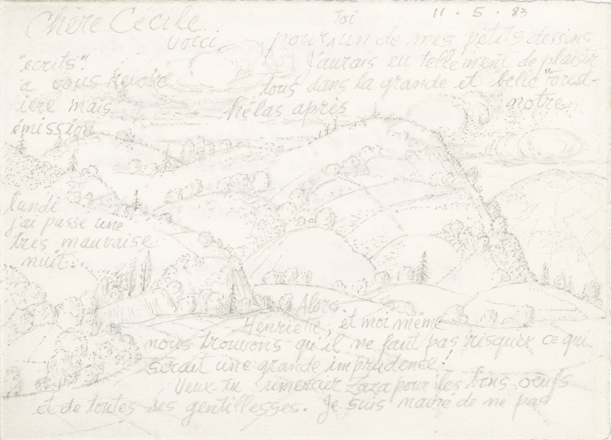 11 . 5 . 83
Chère Cécile Toi
voici, pour un de mes petits dessins
"écrits" j'aurais eu tellement de plaisir
a vous revoir tous dans la grande et belle
ière mais hélas après notre
émission
lundi
j'ai passé une
très mauvaise
nuit.
Alors,
Henriette, et moi même
nous trouvons qu'il ne faut pas risquer ce qui
serait une grande imprudence!
Veux tu Zaza pour les bons oeufs
et de toutes ses gentillesses. Je suis navré de ne pas